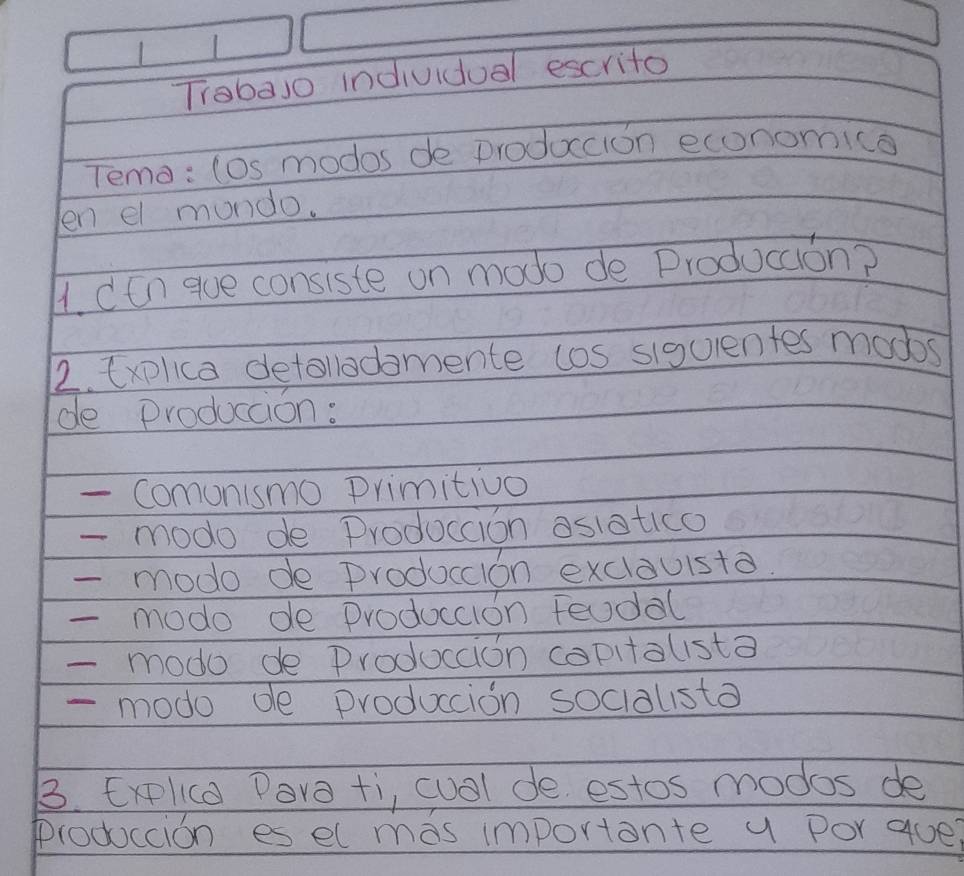 Trabajo individual escrito
Tema: los modos de producción economica
en el mundo.
1. ¿En que consiste un modo de producción?
2. Explica detalladamente los siguientes modos
de producción:
- comunismo primitivo
- modo de producción asiatico
- modo de producción exclavista.
- modo de producción feudal
- modo de producción capitalista
- modo de producción socialista
3. Explica para ti, cual de estos modos de
producción es el más importante y por que?